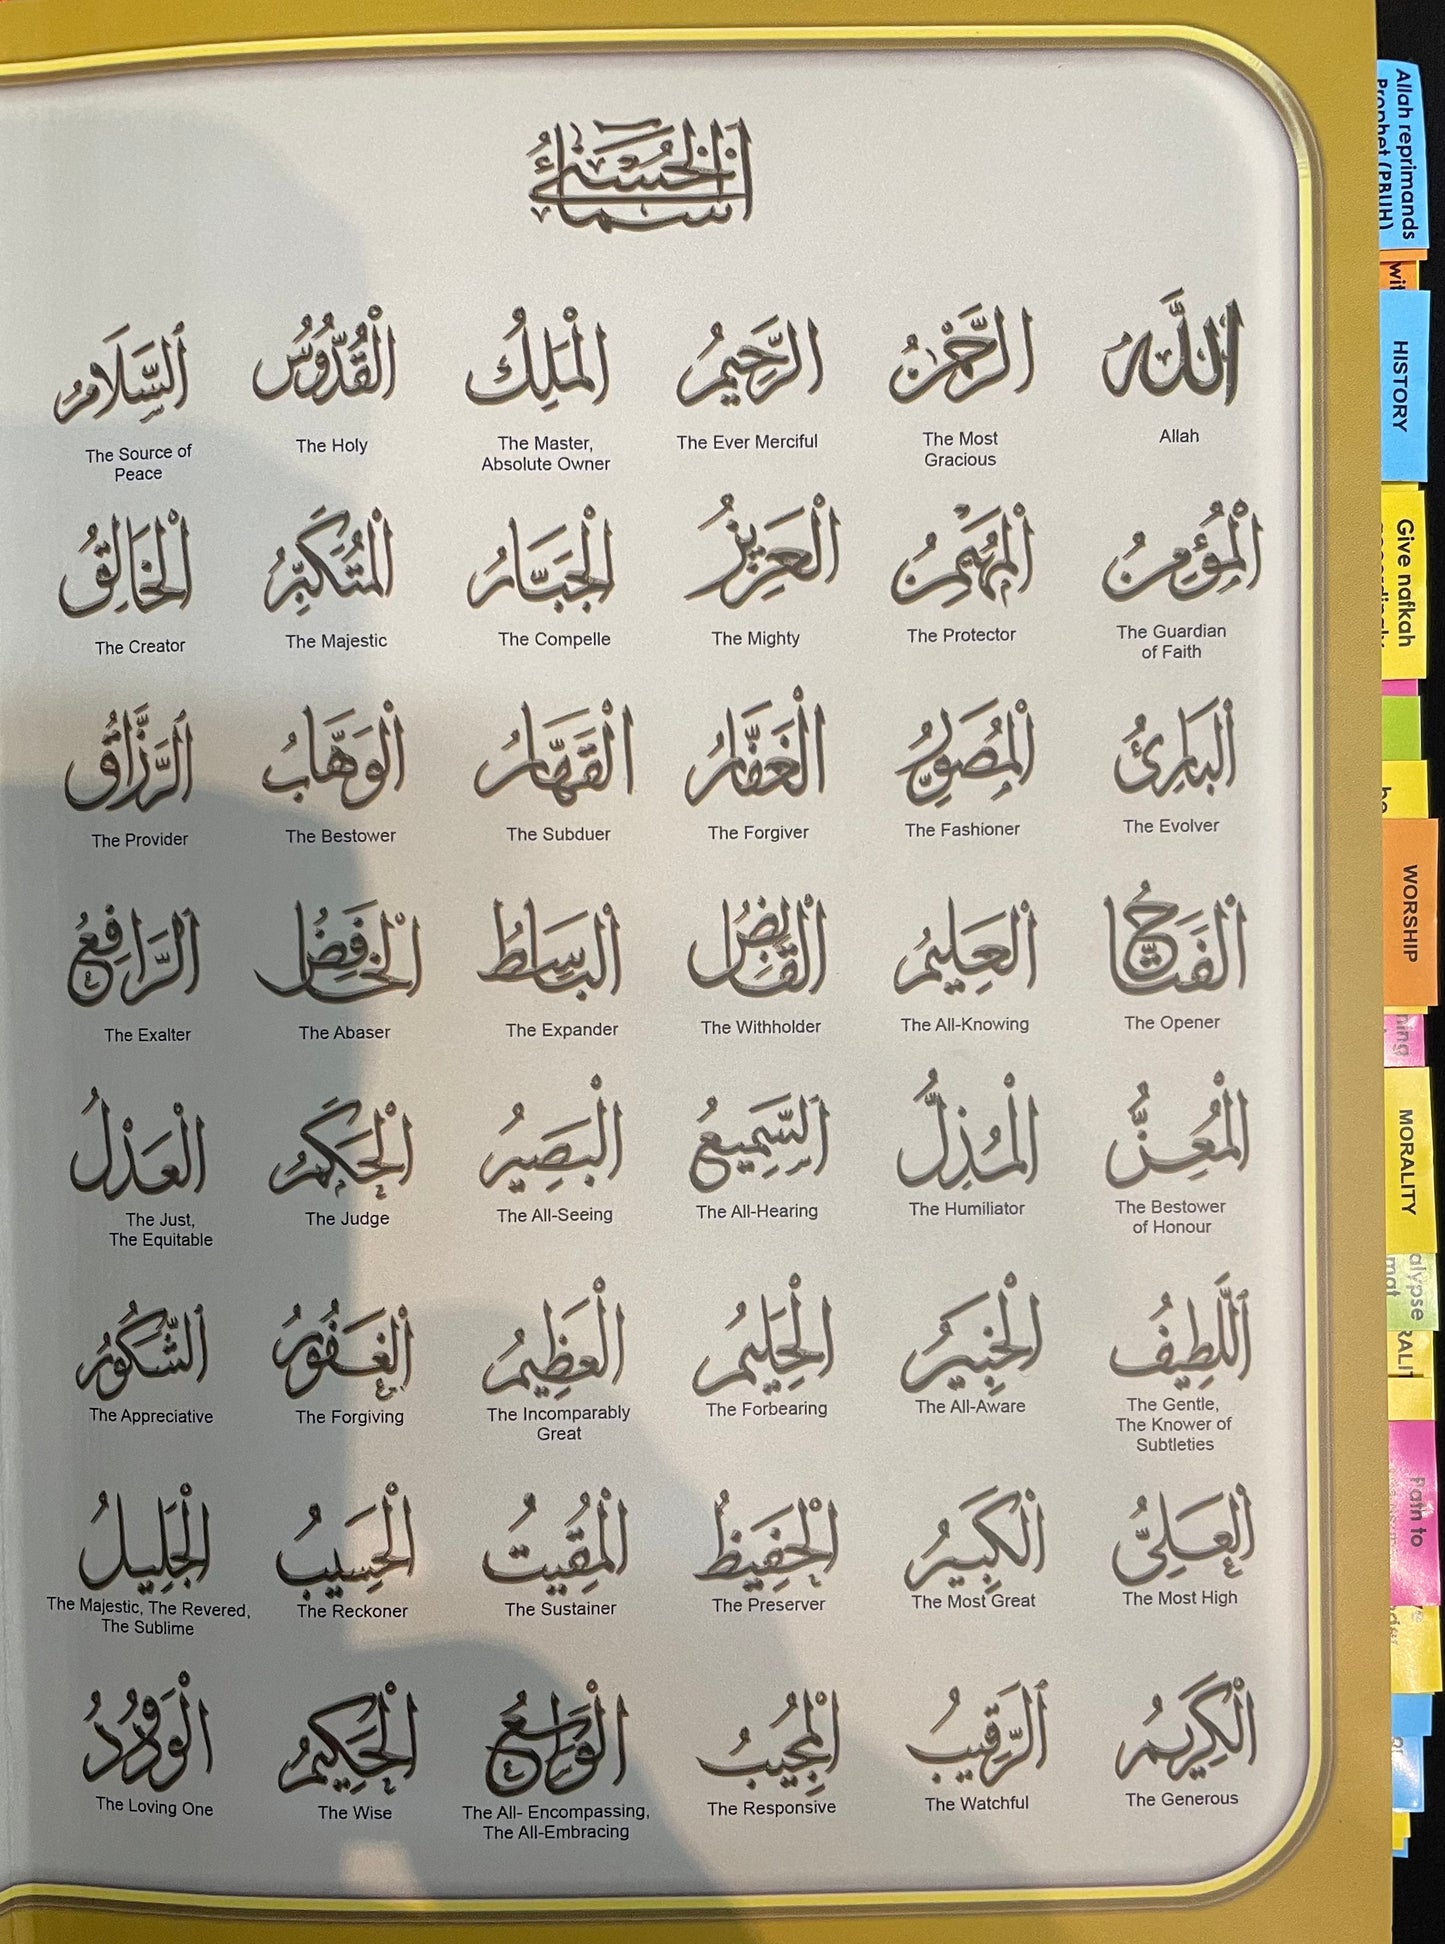 أسماء الله الحسنى
اللَّهُ
Allah
الرَّحْمَٰنُ
The Most
Gracious
الرَّحِيمُ
The Ever Merciful
الْمَلِكُ
The Master,
Absolute Owner
الْقُدُّوسُ
The Holy
السَّلَامُ
The Source of
Peace
الْمُؤْمِنُ
The Guardian
of Faith
الْمُهَيْمِنُ
The Protector
الْعَزِيزُ
The Mighty
الْجَبَّارُ
The Compelle
الْمُتَكَبِّرُ
The Majestic
الْخَالِقُ
The Creator
الْبَارِئُ
The Evolver
الْمُصَوِّرُ
The Fashioner
الْغَفَّارُ
The Forgiver
الْقَهَّارُ
The Subduer
الْوَهَّابُ
The Bestower
الرَّزَّاقُ
The Provider
الْفَتَّاحُ
The Opener
الْعَلِيمُ
The All-Knowing
الْقَابِضُ
The Withholder
الْبَاسِطُ
The Expander
الْخَافِضُ
The Abaser
الرَّافِعُ
The Exalter
الْمُعِزُّ
The Bestower
of Honour
الْمُذِلُّ
The Humiliator
السَّمِيعُ
The All-Hearing
الْبَصِيرُ
The All-Seeing
الْحَكَمُ
The Judge
الْعَدْلُ
The Just,
The Equitable
اللَّطِيفُ
The Gentle,
The Knower of
Subtleties
الْخَبِيرُ
The All-Aware
الْحَلِيمُ
The Forbearing
الْعَظِيمُ
The Incomparably
Great
الْغَفُورُ
The Forgiving
الشَّكُورُ
The Appreciative
الْعَلِيُّ
The Most High
الْكَبِيرُ
The Most Great
الْحَفِيظُ
The Preserver
الْمُقِيتُ
The Sustainer
الْحَسِيبُ
The Reckoner
الْجَلِيلُ
The Majestic, The Revered,
The Sublime
الْكَرِيمُ
The Generous
الرَّقِيبُ
The Watchful
الْمُجِيبُ
The Responsive
الْوَاسِعُ
The All- Encompassing,
The All-Embracing
الْحَكِيمُ
The Wise
الْوَدُودُ
The Loving One
Allah reprimands
Prophet (PBUH)
HISTORY
Give nafkah
WORSHIP
MORALITY
Path to